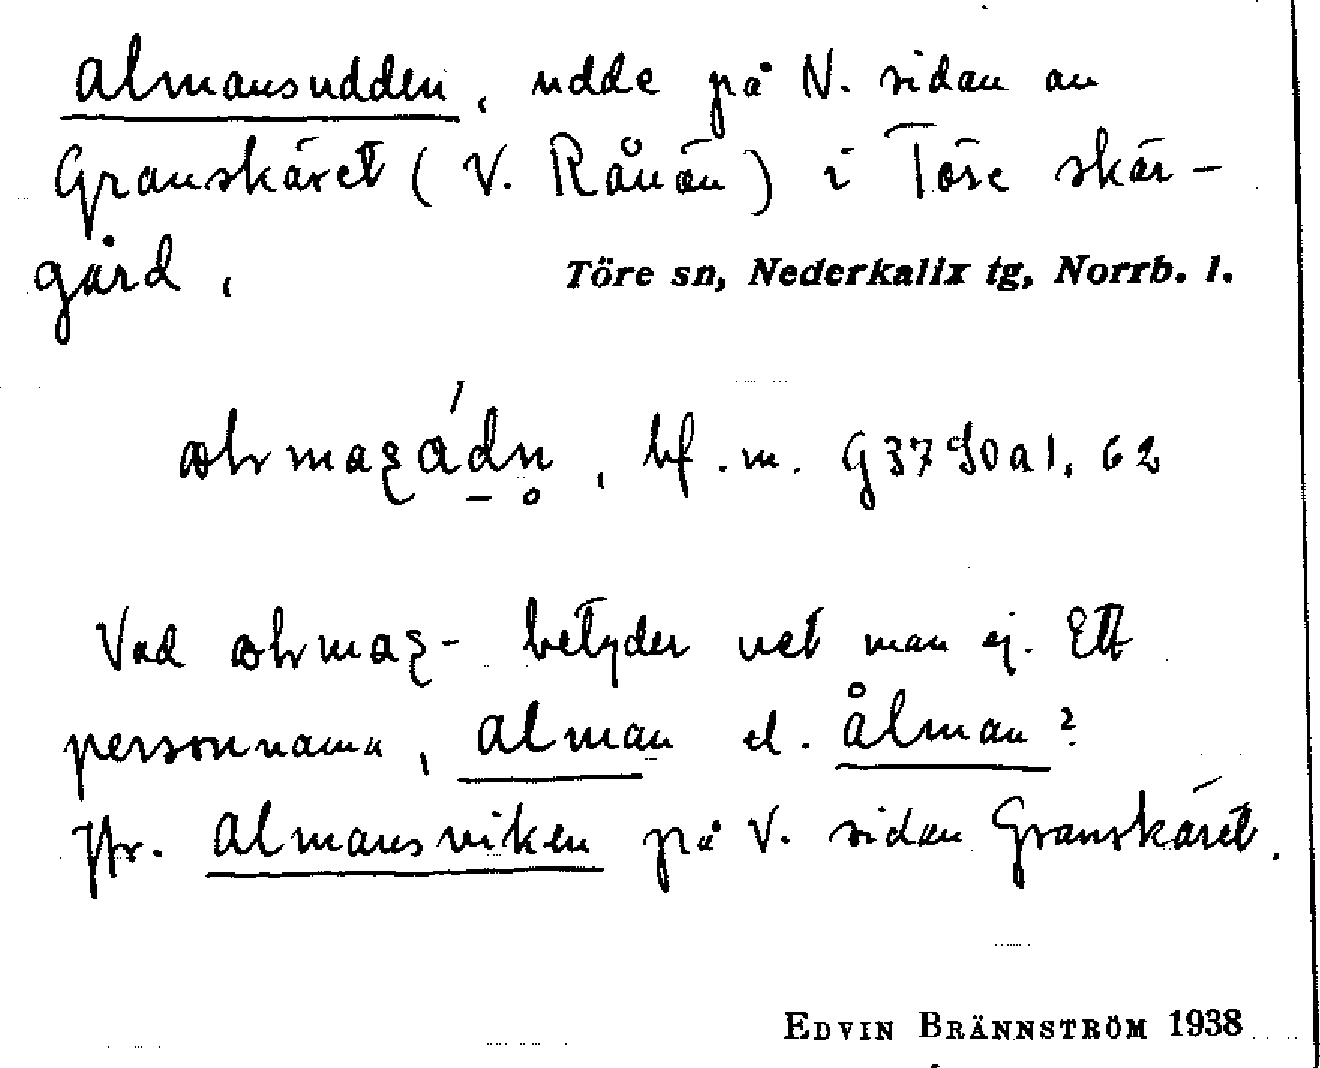 Almansudden, udde på N. sidan av
Granskäret (V. Rånön) i Töre skär-
gård,
Töre sn, Nederkalix tg, Norrb. l.
, bf. m. G 37 90 a 1, 62
Vad betyder vet man ej. Ett
personnamn, Alman el. Ålman?
Jfr. Almansviken på V. sidan Granskäret.
EDVIN BRÄNNSTRÖM 1938